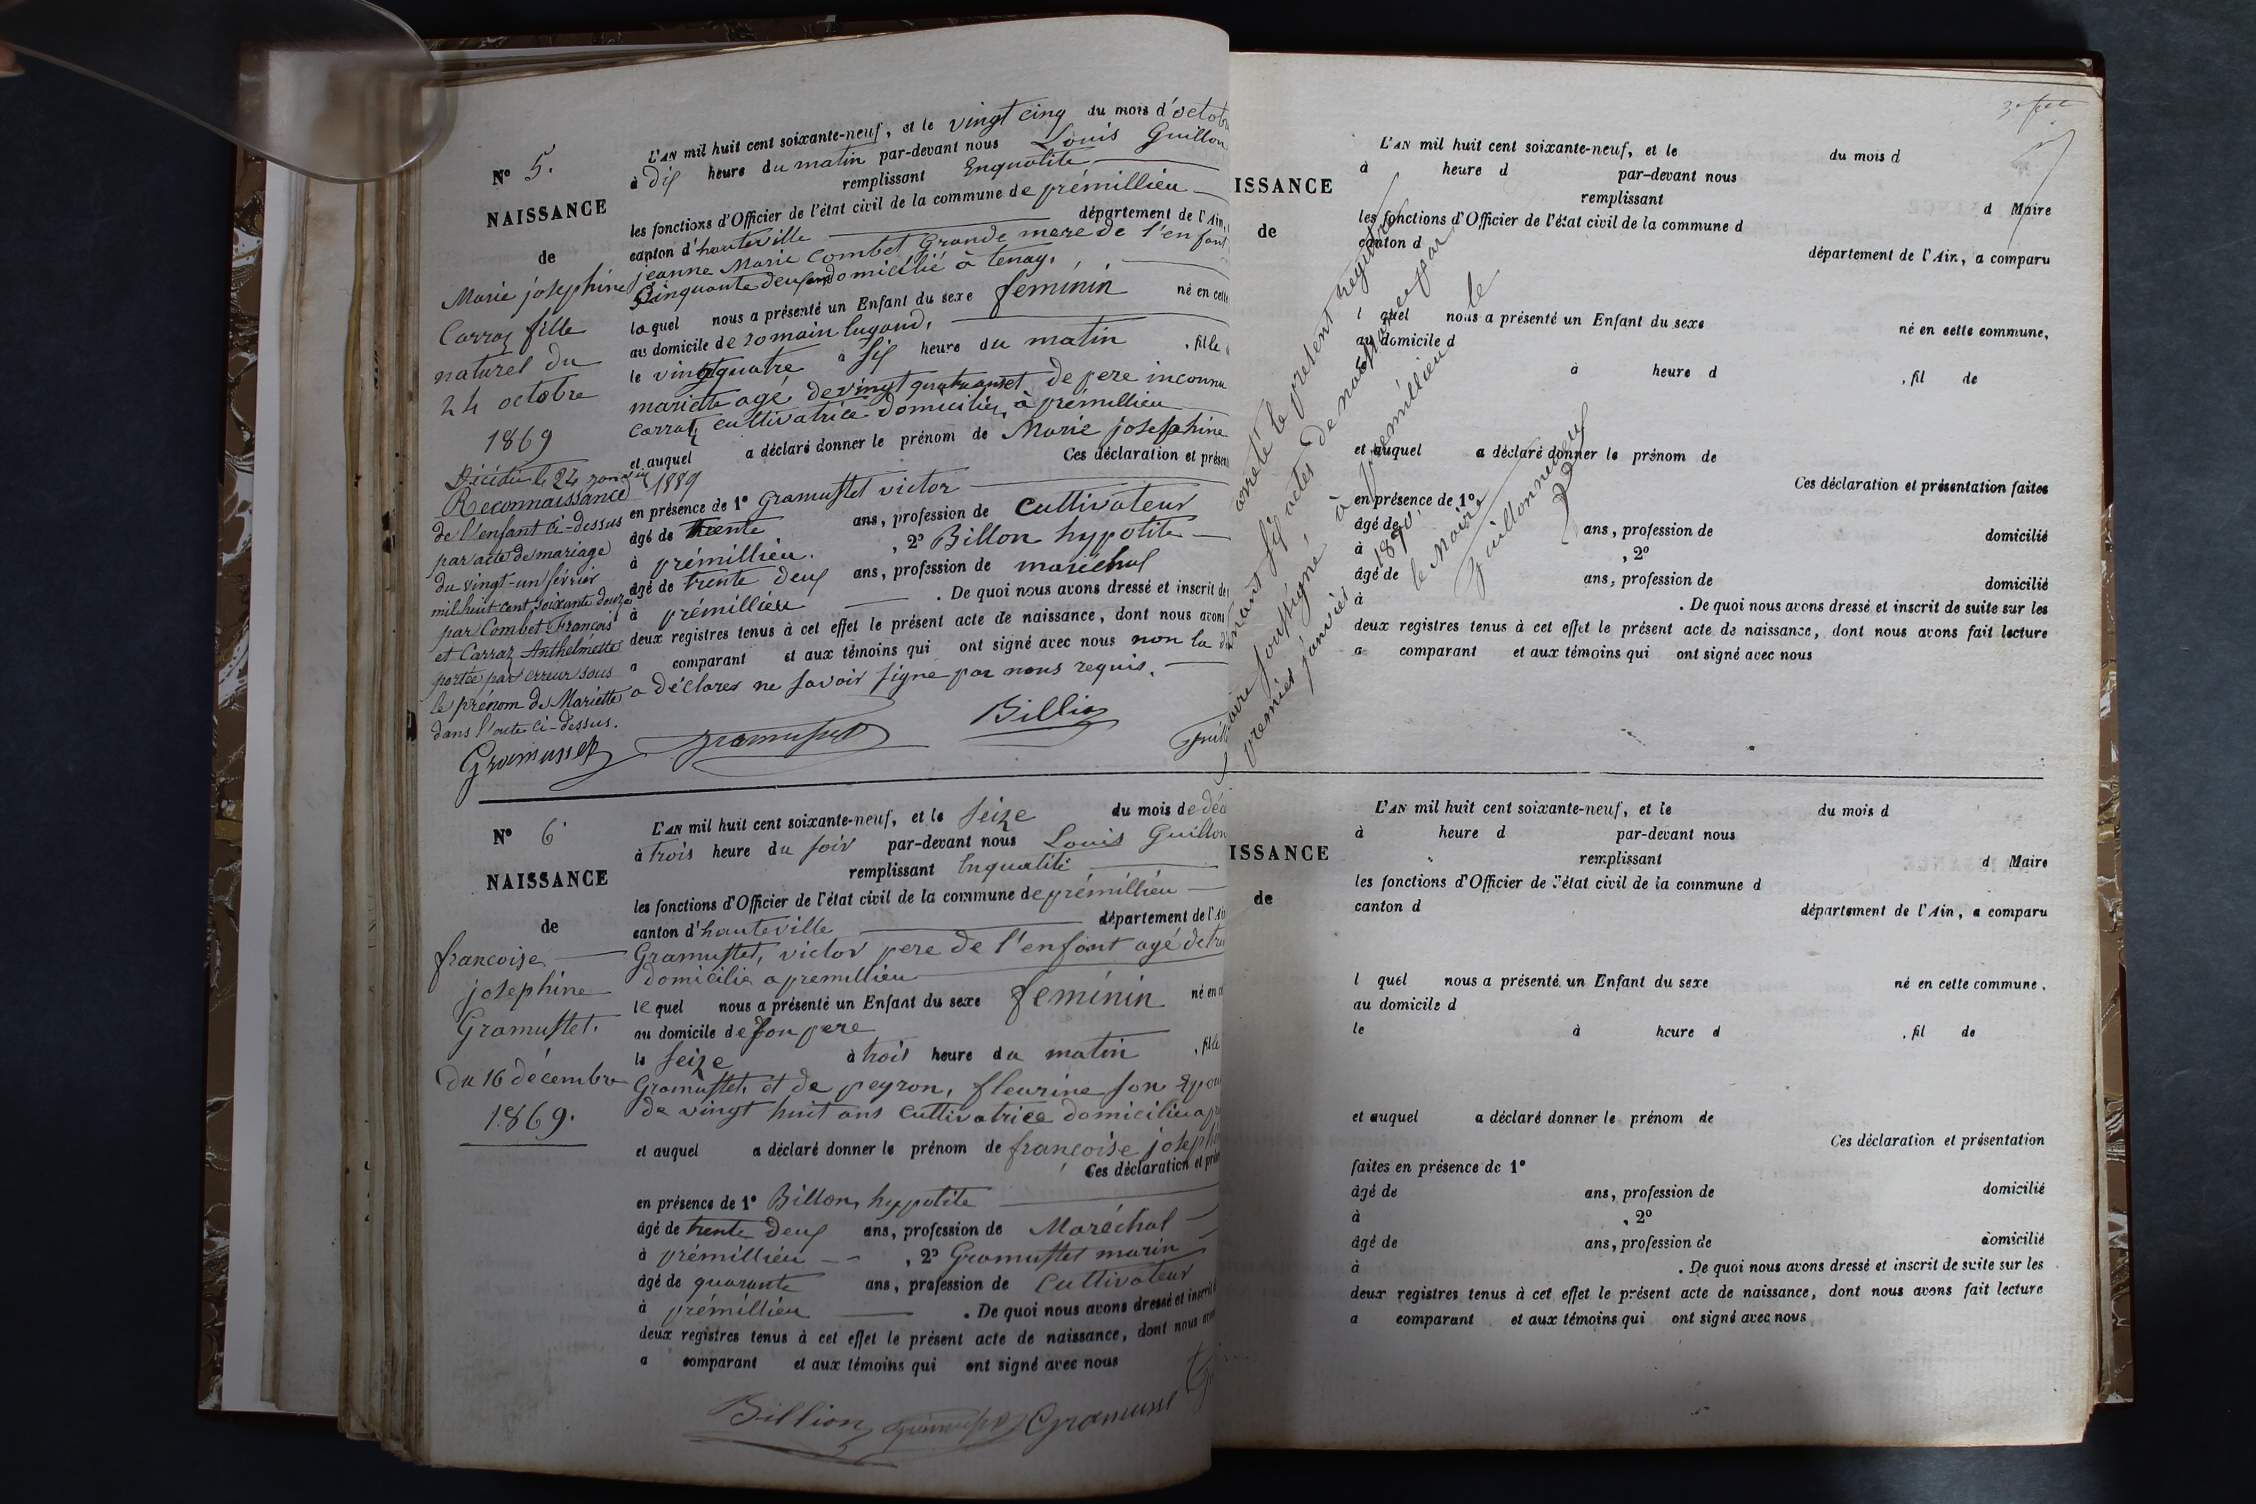 N° 5.
NAISSANCE
de
Marie josephine
Carraz fille
naturel du
24 octobre
1869
Décédée le 24
1889
Reconnaissance
de l'enfant ci-dessus
par acte de mariage
du vingt-un février
mil huit cent soixante douze
par Combet François
et Carraz Anthelmette
portée par erreur sous
le prénom de Mariette
dans l'acte ci-dessus.
Gramusset
L'AN mil huit cent soixante-neuf, et le vingt cinq du mois d'octob
à dix heure du matin par-devant nous Louis Guillon
remplissant Enqualite
les fonctions d'Officier de l'état civil de la commune de prémillieu
canton d'hauteville département de l'Ain,
jeanne Marie Combet Grande mere de l'enfant
Cinquante deux ans domicilié à tenay,
laquel nous a présenté un Enfant du sexe feminin né en cette
au domicile de romain lugand,
le vingt quatre à six heure du matin , fille
mariette agé de vingt quatre ans et de pere inconnu
carraz cultivatrice domiciliée à premillieu
et auquel a déclaré donner le prénom de Marie josephine
Ces déclaration et présen
en présence de 1° Gramusset victor
âgé de trente ans, profession de Cultivateur
à prémillieu. , 2° Billon hypolite
âgé de trente deux ans, profession de maréchal
à prémillieu . De quoi nous avons dressé et inscrit de
deux registres tenus à cet effet le présent acte de naissance, dont nous avons
a comparant et aux témoins qui ont signé avec nous non la
a déclarer ne savoir signe par nous requis.
Billion
gramusset
N° 6
NAISSANCE
de
francoise
josephine
Gramusset.
du 16 décembre
1869.
L'AN mil huit cent soixante-neuf, et le seize du mois de déc
à trois heure du soir par-devant nous Louis Guillon
remplissant Enqualité
les fonctions d'Officier de l'état civil de la commune de prémillieu
canton d'hauteville département de l'Ain
Gramusset, victor pere de l'enfant agé de
domicilie a premillieu
lequel nous a présenté un Enfant du sexe feminin né en
au domicile de son pere
le seize à trois heure du matin , fille
Gramusset, et de peyron, fleurine son Epou
de vingt huit ans cultivatrice domiciliée a
et auquel a déclaré donner le prénom de françoise joseph
Ces déclaration et prés
en présence de 1° Billon, hypolite
âgé de trente deux ans, profession de Maréchal
à prémillieu , 2° Gramusset marin
âgé de quarante ans, profession de Cultivateur
à prémillieu . De quoi nous avons dressé et inscrit
deux registres tenus à cet effet le présent acte de naissance, dont nous avon
a comparant et aux témoins qui ont signé avec nous
Billion gramusset Gramusset
ISSANCE
de
L'AN mil huit cent soixante-neuf, et le du mois d
à heure d par-devant nous
remplissant d Maire
les fonctions d'Officier de l'état civil de la commune d
canton d département de l'Ain, a comparu
l quel nous a présenté un Enfant du sexe né en cette commune,
au domicile d
à heure d , fil de
et auquel a déclaré donner le prénom de
Ces déclaration et présentation faites
en présence de 1°
âgé de ans, profession de domicilié
à , 2°
âgé de ans, profession de domicilié
à . De quoi nous avons dressé et inscrit de suite sur les
deux registres tenus à cet effet le présent acte de naissance, dont nous avons fait lecture
a comparant et aux témoins qui ont signé avec nous
arrêté le présent registre
six actes de naissance par
maire soussigné à prémillieu le
premier janvier 1870.
le Maire
Guillon
ISSANCE
de
L'AN mil huit cent soixante-neuf, et le du mois d
à heure d par-devant nous
remplissant d Maire
les fonctions d'Officier de l'état civil de la commune d
canton d département de l'Ain, a comparu
l quel nous a présenté un Enfant du sexe né en cette commune,
au domicile d
le à heure d , fil de
et auquel a déclaré donner le prénom de
Ces déclaration et présentation
faites en présence de 1°
âgé de ans, profession de domicilié
à , 2°
âgé de ans, profession de domicilié
à . De quoi nous avons dressé et inscrit de suite sur les
deux registres tenus à cet effet le présent acte de naissance, dont nous avons fait lecture
a comparant et aux témoins qui ont signé avec nous